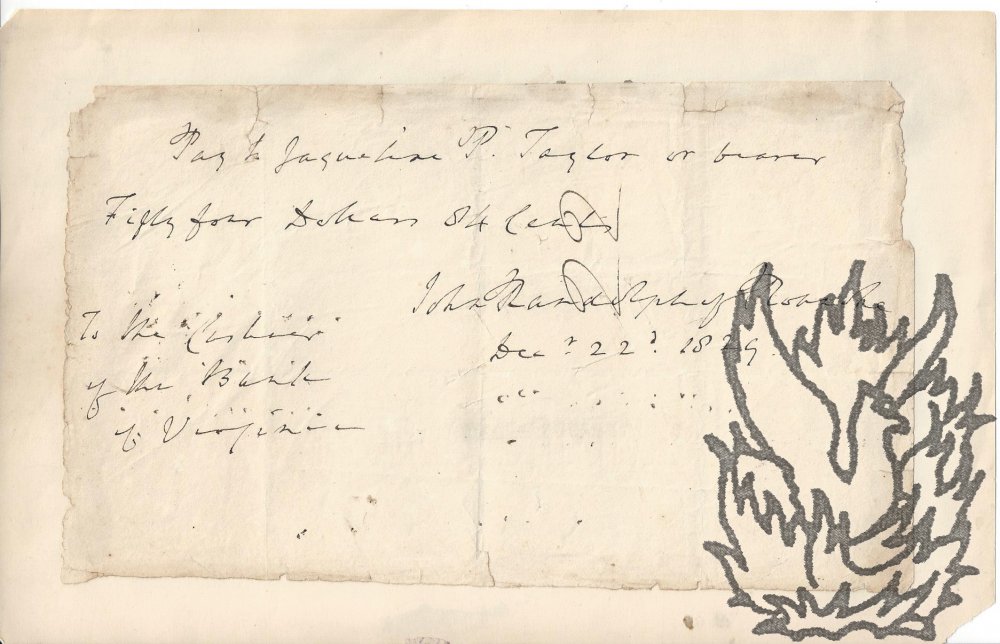 Pay to Jaqueline P. Taylor or bearer
Fifty four Dollars 84 Cents
John Randolph of Roanoke
To the Cashier
Decr 22d. 1829.
of the Bank
of Virginia